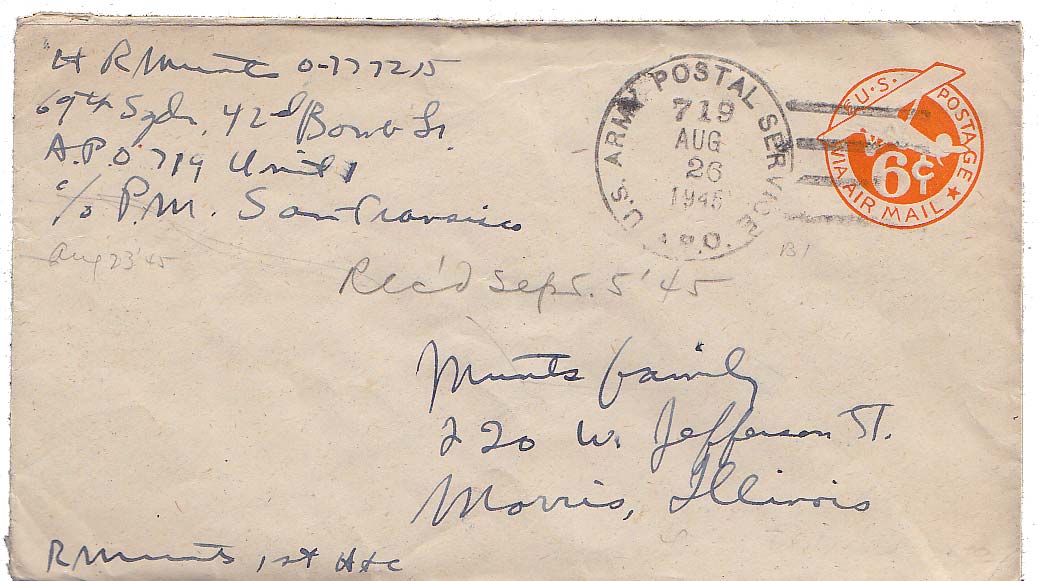 Lt R Munts O-777215
69th Sqdn, 42nd Bomb Gr.
A.P.O 719 Unit 1
c/o P.M. San Fransisco
Aug 23 '45
U.S. ARMY POSTAL SERVICE
719
AUG
26
1945
A.P.O.
U.S. POSTAGE
6¢
VIA AIR MAIL
Rec'd Sept. 5 '45
Munts family
220 W. Jefferson ST.
Morris, Illinois
R Munts, 1st